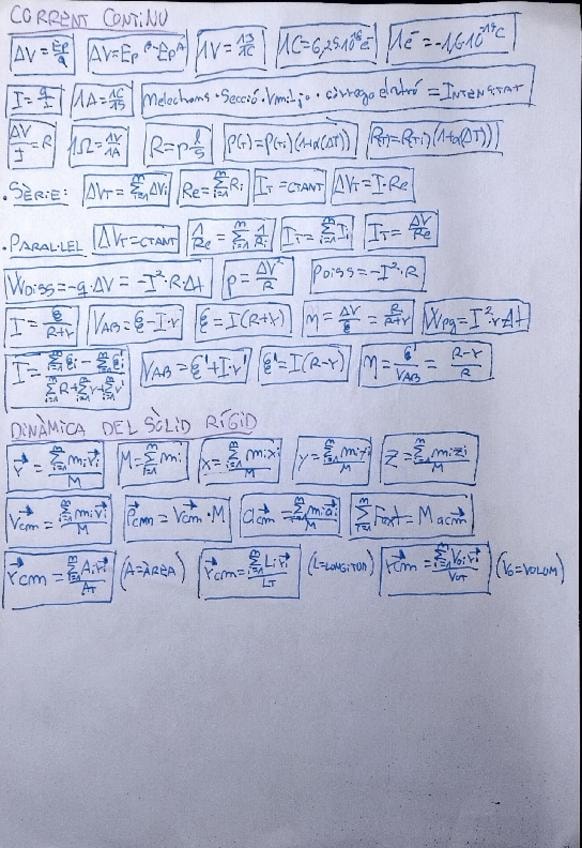 CORRENT CONTINU
ΔV = Ep/q ΔV = Ep^B - Ep^A 1V = 1J/1C 1C = 6,25·10^18 e⁻ 1e⁻ = -1,6·10^-19 C
I = q/t 1A = 1C/1S Nelectrons · Secció · Vmitja · càrrega electró = INTENSITAT
ΔV/I = R 1Ω = 1V/1A R = ρ l/S ρ(T) = ρ(Ti)(1+α(ΔT)) R(T) = R(Ti)(1+α(ΔT))
· SÈRIE: ΔVT = Σ(i=1→m) ΔVi Re = Σ(i=1→m) Ri IT = CTANT ΔVT = I·Re
· PARAL·LEL ΔVT = CTANT 1/Re = Σ(i=1→m) 1/Ri IT = Σ(i=1→m) Ii IT = ΔV/Re
WDISS = -q·ΔV = -I²·R·Δt P = ΔV²/R PDISS = -I²·R
I = ξ/(R+r) VAB = ξ - I·r ξ = I(R+r) η = ΔV/ξ = R/(R+r) Wpg = I²·r·Δt
I = (Σ ξi - Σ ξi')/(Σ R + Σ r + Σ r') VAB = ξ' + I·r' ξ' = I(R-r) η = ξ'/VAB = (R-r)/R
DINÀMICA DEL SÒLID RÍGID
r⃗ = Σ(i=1→m) mi r⃗i / M M = Σ(i=1→m) mi x = Σ(i=1→m) mi xi / M y = Σ(i=1→m) mi yi / M z = Σ(i=1→m) mi zi / M
V⃗cm = Σ(i=1→m) mi v⃗i / M p⃗cm = V⃗cm · M a⃗cm = Σ(i=1→m) mi a⃗i / M Σ(i=1→m) Fext = M a⃗cm
r⃗cm = Σ(i=1→m) Ai r⃗i / AT (A=ÀREA) r⃗cm = Σ(i=1→m) Li r⃗i / LT (L=LONGITUD) r⃗cm = Σ(i=1→m) Voi r⃗i / VoT (Vo=VOLUM)